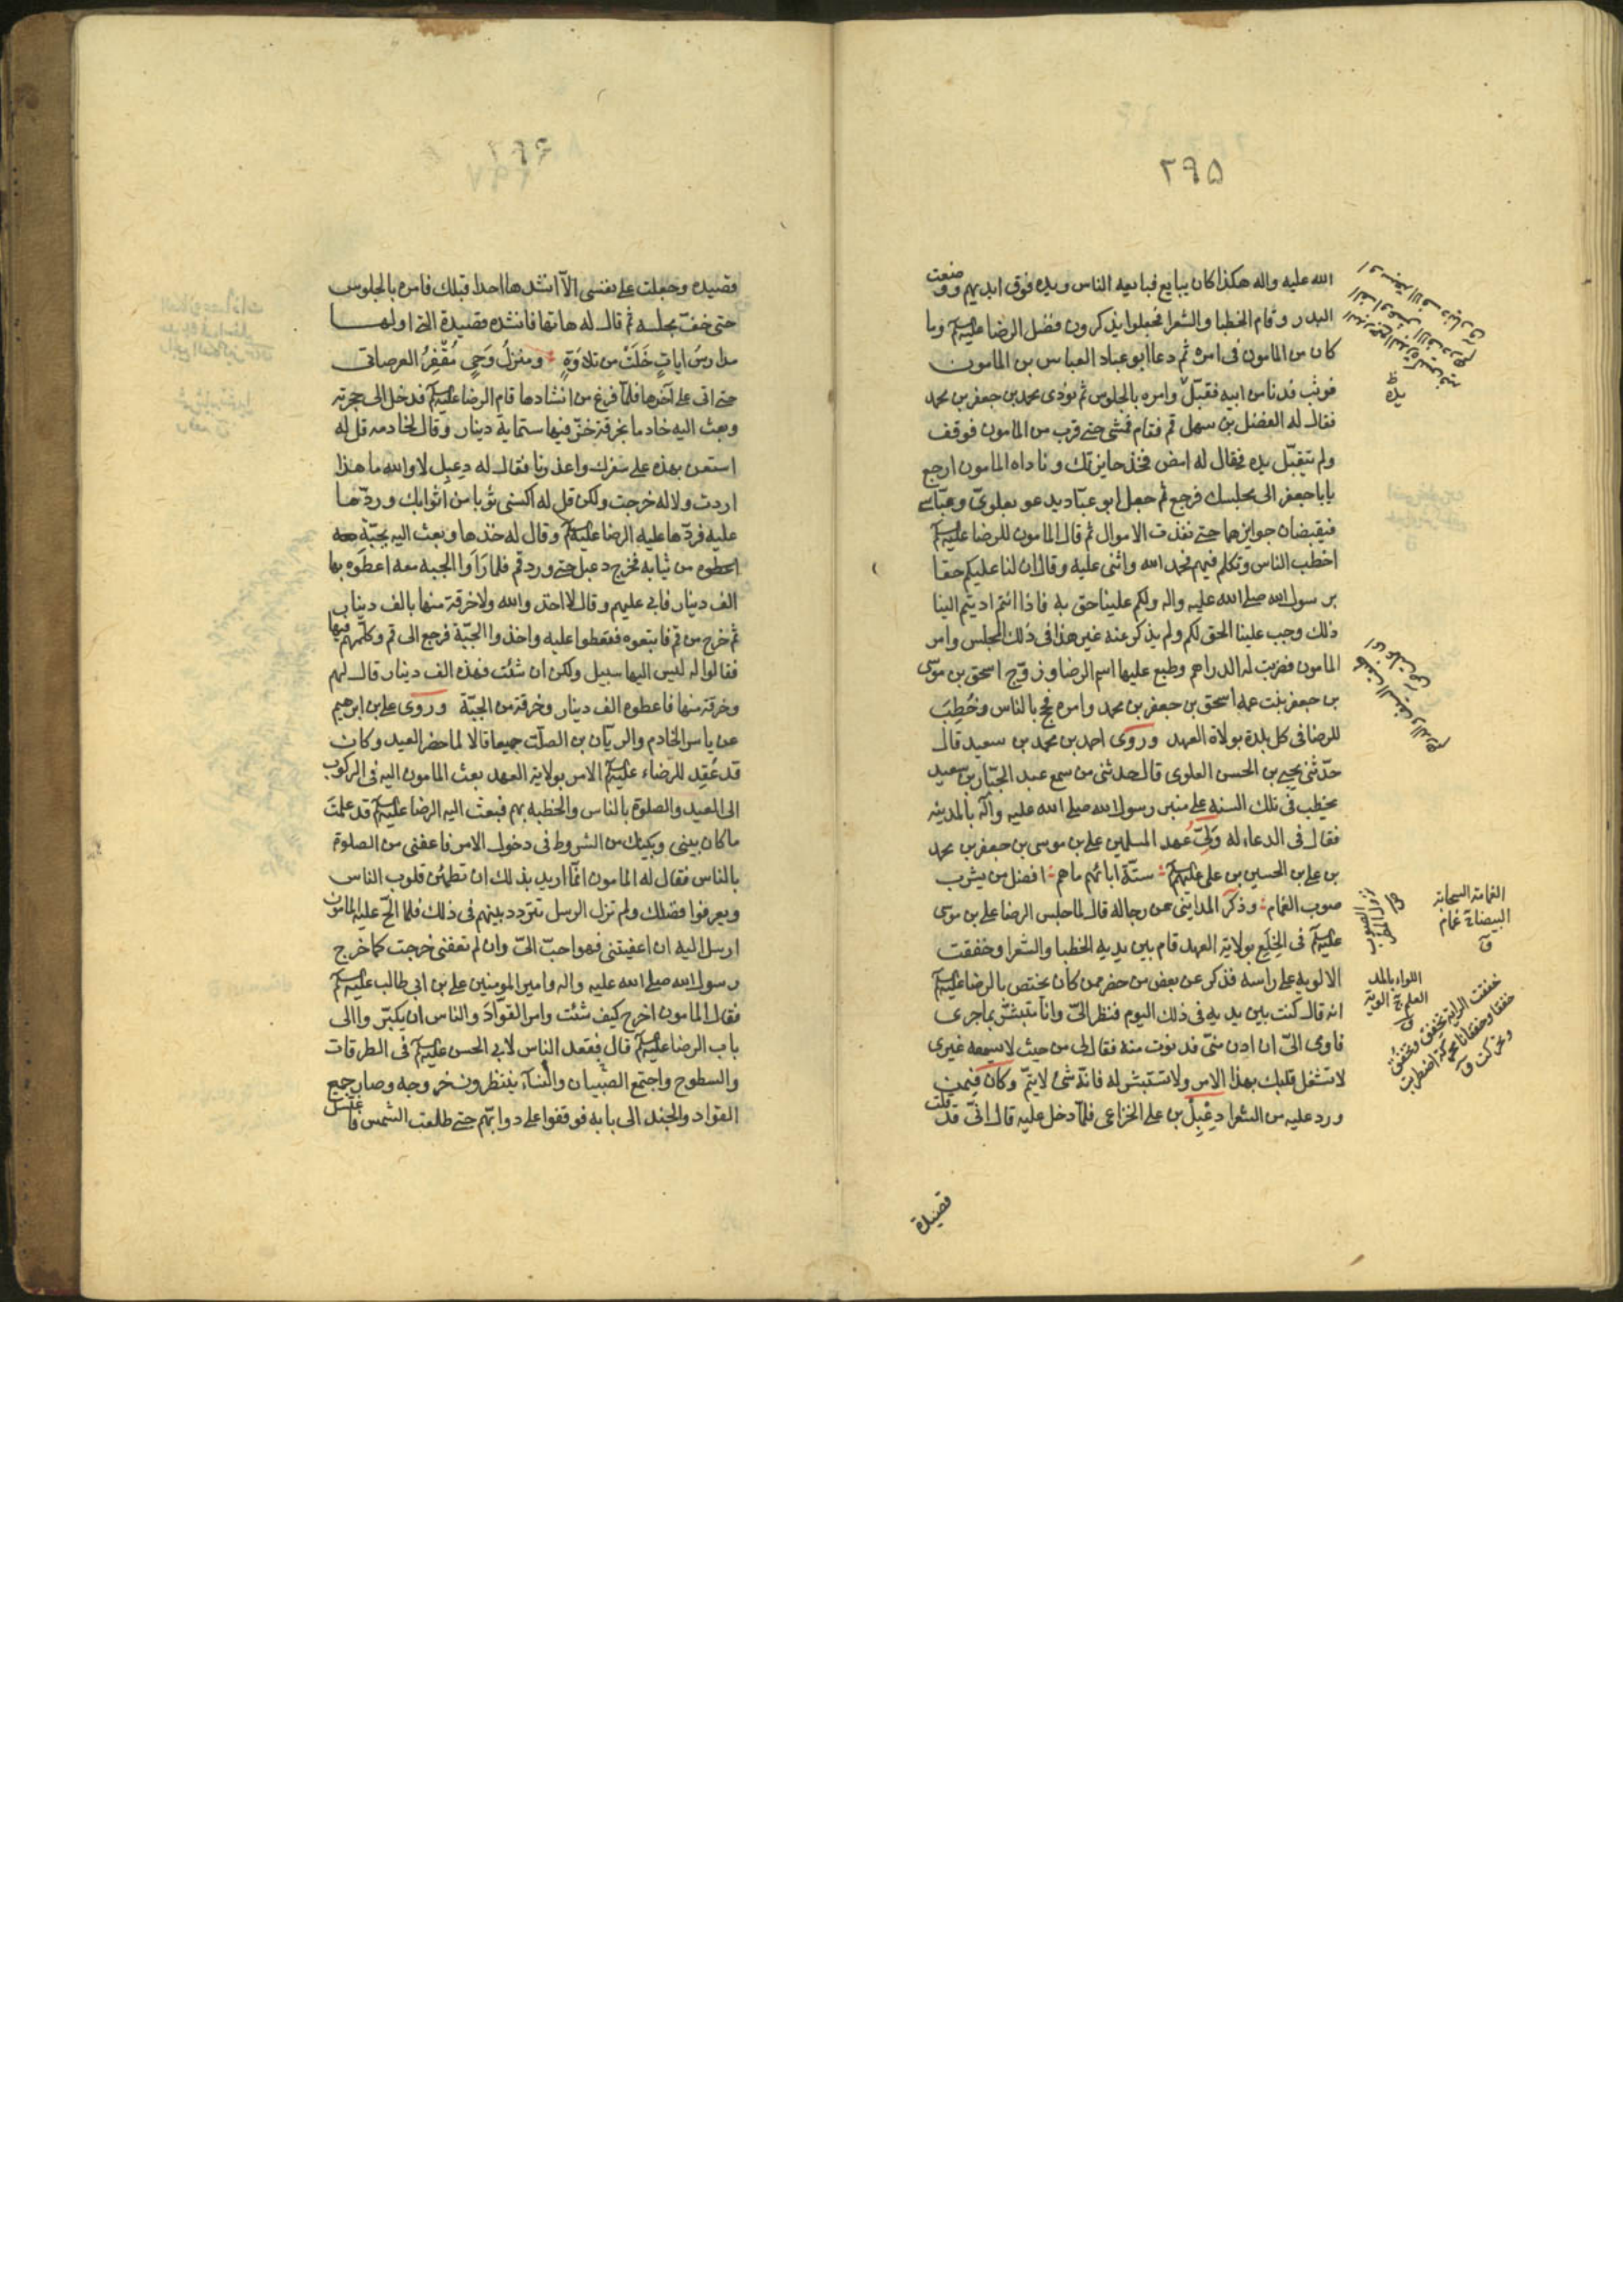 ٢٩٥
الله عليه واله هكذا كان يبايع فبايعه الناس ويده فوق ايديهم ووضعت
البدر وقام الخطبا والشعرا فجعلوا يذكرون فضل الرضا عليه السلم وما
كان من المامون فى امره ثم دعا ابو عباد العباس بن المامون
فوثب فدنا من ابيه فقبّل يده وامره بالجلوس ثم نودى محمد بن جعفر بن محمد
فقال له الفضل بن سهل قم فقام فمشى حتى قرب من المامون فوقف
ولم يقبّل يده فقال له امض فخذ جايزتك وناداه المامون ارجع
يابا جعفر الى مجلسك فرجع ثم جعل ابو عبّاد يدعو بعلوىّ وعبّاسى
فيقبضان جوايزهما حتى نفذت الاموال ثم قال المامون للرضا عليه السلم
اخطب الناس وتكلم فيهم فحمد الله واثنى عليه وقال ان لنا عليكم حقا
برسول الله صلى الله عليه واله ولكم علينا حق به فاذا انتم اديتم الينا
ذلك وجب علينا الحق لكم ولم يذكر عنه غير هذا فى ذلك المجلس وامر
المامون فضربت له الدراهم وطبع عليها اسم الرضا وزوّج اسحق بن موسى
بن جعفر بنت عمه اسحق بن جعفر بن محمد وامره فحج بالناس وخُطِبَ
للرضا فى كل بلدة بولاة العهد وروى احمد بن محمد بن سعيد قال
حدّثنى يحيى بن الحسن العلوى قال حدثنى من سمع عبد الجبّار بن سعيد
يخطب فى تلك السنه على منبر رسول الله صلى الله عليه وآله بالمدينه
فقال فى الدعاء له ولىّ عهد المسلمين على بن موسى بن جعفر بن محمد
بن على بن الحسين بن على عليهم السلم ستّة اباؤهم ماهم افضل من يشرب
صوب الغمام وذكر المداينى عن رجاله قال لما جلس الرضا على بن موسى
عليه السلم فى الخِلَع بولاية العهد قام بين يديه الخطبا والشعرا وخفقت
الالويه على راسه فذكر عن بعض من حضر ممن كان يختص بالرضا عليه السلم
انه قال كنت بين يديه فى ذلك اليوم فنظر الىّ وانا مستبشر بما جرى
فاومى الىّ ان ادن منىّ فدنوت منه فقال لى من حيث لا يسمعه غيرى
لا تشغل قلبك بهذا الامر ولا تستبشر له فانّه شئ لا يتمّ وكان فيمن
ورد عليه من الشعرا دِعْبِل بن على الخزاعى فلمّا دخل عليه قال انّى قد قلت
قصيدة
الغمامة السحابة
البيضاء ج غمام
ق
اللواء بالمد
العلم ج الوية
ق
خفقت الراية تخفق وتخفُق
خفقا وخفقانا محركة اضطربت
وتحركت ق
قصيده وجعلت على نفسى الاّ انشدها احدا قبلك فامره بالجلوس
حتى خفّ مجلسه ثم قال له هاتها فانشده قصيدة التى اولها
مدارس اياتٍ خَلَتْ من تلاوَةٍ ومنزلُ وَحىٍ مُقْفِرُ العرصاتى
حتى اتى على آخرها فلمّا فرغ من انشادها قام الرضا عليه السلم فدخل الى حجرته
وبعث اليه خادما بخرقة خزّ فيها ستماية دينار وقال لخادمه قل له
استعن بهذه على سفرك واعذرنا فقال له دعبل لا والله ما هذا
اردت ولا له خرجت ولكن قل له اكسنى ثوبا من اثوابك وردّها
عليه فردّها عليه الرضا عليه السلم وقال له خذها وبعث اليه بجبّة
من ثيابه فخرج دعبل حتى ورد قم فلما رَاَوا الجبه معه اعطَوه بها
الف دينار فابى عليهم وقال لا اخذ والله ولا خرقة منها بالف دينار
ثم خرج من قم فاتبعوه فقطعوا عليه واخذوا الجبّة فرجع الى قم وكلّمهم فيها
فقالوا له ليس اليها سبيل ولكن ان شئت فهذه الف دينار قال لهم
وخرقة منها فاعطوه الف دينار وخرقة من الجبّة وروى على بن ابرهيم
عن ياسر الخادم والريّان بن الصلّت جميعا قالا لما حضر العيد وكان
قد عُقِد للرضاء عليه السلم الامر بولاية العهد بعث المامون اليه فى الركوب
الى العيد والصلوة بالناس والخطبه بهم فبعث اليه الرضا عليه السلم قد علمتَ
ما كان بينى وبينك من الشروط فى دخول الامر فاعفنى من الصلوة
بالناس فقال له المامون انّما اريد بذلك ان تطمئن قلوب الناس
ويعرفوا فضلك ولم تزل الرسل تتردد بينهم فى ذلك فلما الحّ عليه المامون
ارسل اليه ان اعفيتنى فهو احبّ الىّ وان لم تعفنى خرجت كما خرج
رسول الله صلى الله عليه واله وامير المومنين على بن ابى طالب عليه السلم
فقال المامون اخرج كيف شئت وامر القوّادَ والناس ان يبكّروا الى
باب الرضا عليه السلم قال فقعد الناس لابى الحسن عليه السلم فى الطرقات
والسطوح واجتمع الصّبيان والنّساء ينتظرون خروجه وصار جميع
القواد والجند الى بابه فوقفوا على دوابّهم حتى طلعت الشمس فاغتسل